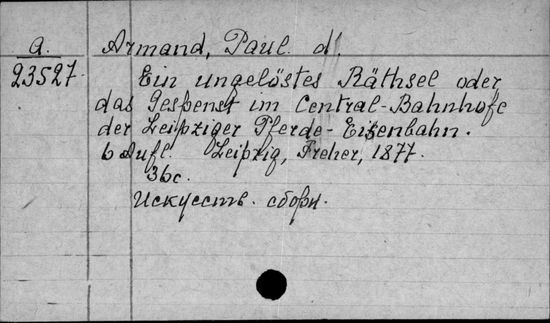 a.
23527.
Armand, Paul d'.
Ein ungelöstes Räthsel oder
das Gespenst im Central-Bahnhofe
der Leipziger Pferde-Eisenbahn.
6 Aufl. Leipzig, Freher, 1877.
36c.
Искусств. сборн.